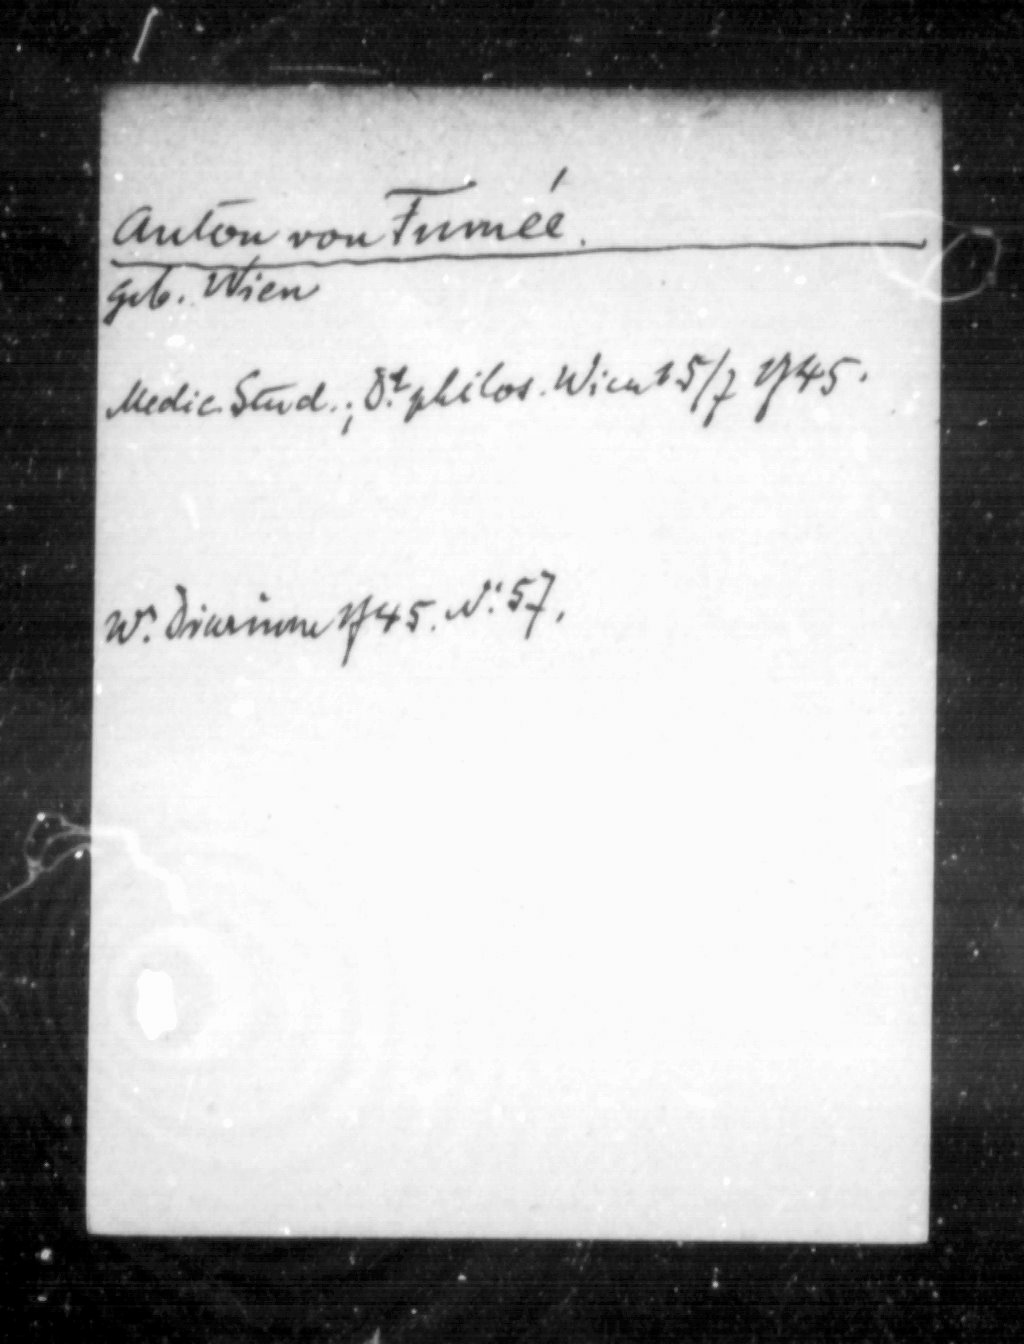 Anton von Fumée.
geb. Wien
Medic. Stud.; Dr. philos. Wien 15/7 1745.
W. Diarium 1745. N. 57.